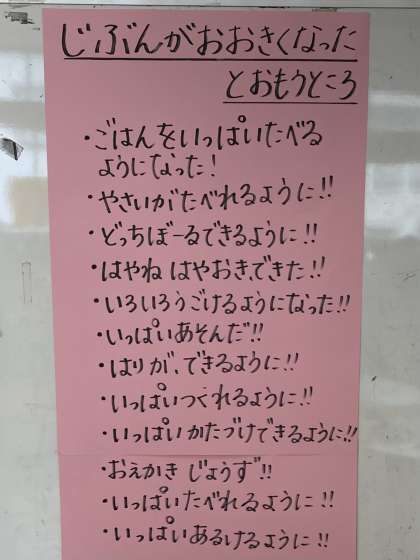 じぶんがおおきくなった
とおもうところ
・ごはんをいっぱいたべる
ようになった!
・やさいがたべれるように!!
・どっちぼーるできるように!!
・はやね はやおき、できた!!
・いろいろうごけるようになった!!
・いっぱいあそんだ!!
・はりが、できるように!!
・いっぱいつくれるように!!
・いっぱいかたづけできるように!!
・おえかき じょうず!!
・いっぱいたべれるように!!
・いっぱいあるけるように!!